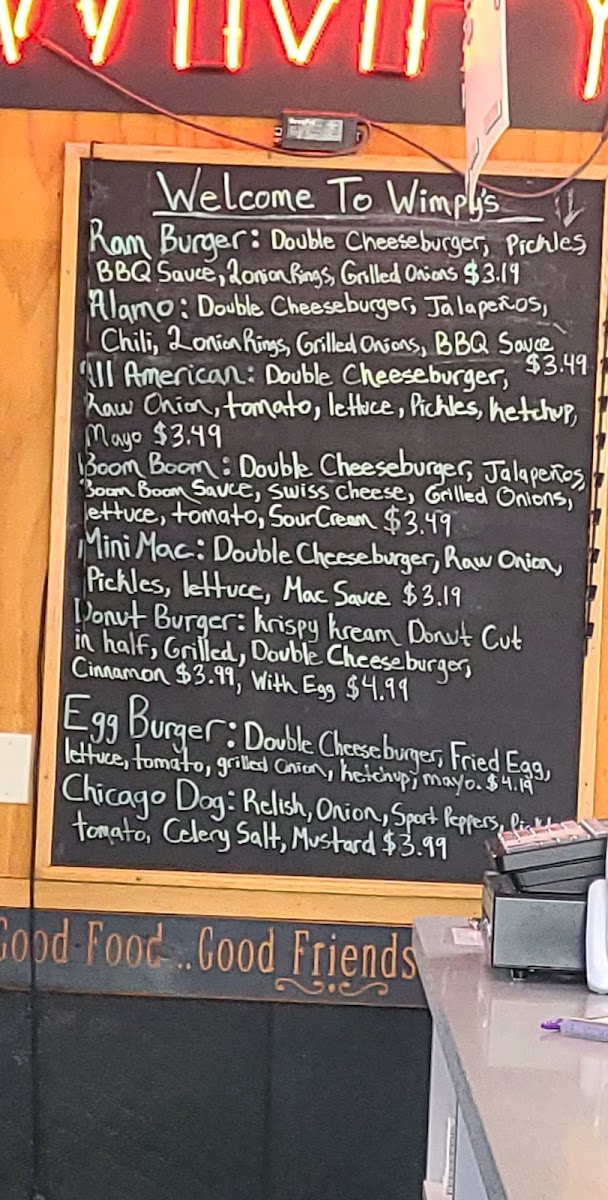 WIMPY
Welcome To Wimpy's
Ram Burger: Double Cheeseburger, Pickles
BBQ Sauce, 2 onion Rings, Grilled Onions $3.19
Alamo: Double Cheeseburger, Jalapeños,
Chili, 2 onion Rings, Grilled Onions, BBQ Sauce
$3.49
All American: Double Cheeseburger,
Raw Onion, tomato, lettuce, Pickles, ketchup,
Mayo $3.49
Boom Boom: Double Cheeseburger, Jalapeños,
Boom Boom Sauce, Swiss Cheese, Grilled Onions,
lettuce, tomato, Sour Cream $3.49
Mini Mac: Double Cheeseburger, Raw Onion,
Pickles, lettuce, Mac Sauce $3.19
Donut Burger: Krispy Kream Donut Cut
in half, Grilled, Double Cheeseburger,
Cinnamon $3.99, With Egg $4.99
Egg Burger: Double Cheeseburger, Fried Egg,
lettuce, tomato, grilled Onion, ketchup, mayo. $4.19
Chicago Dog: Relish, Onion, Sport Peppers,
tomato, Celery Salt, Mustard $3.99
Good Food.. Good Friends